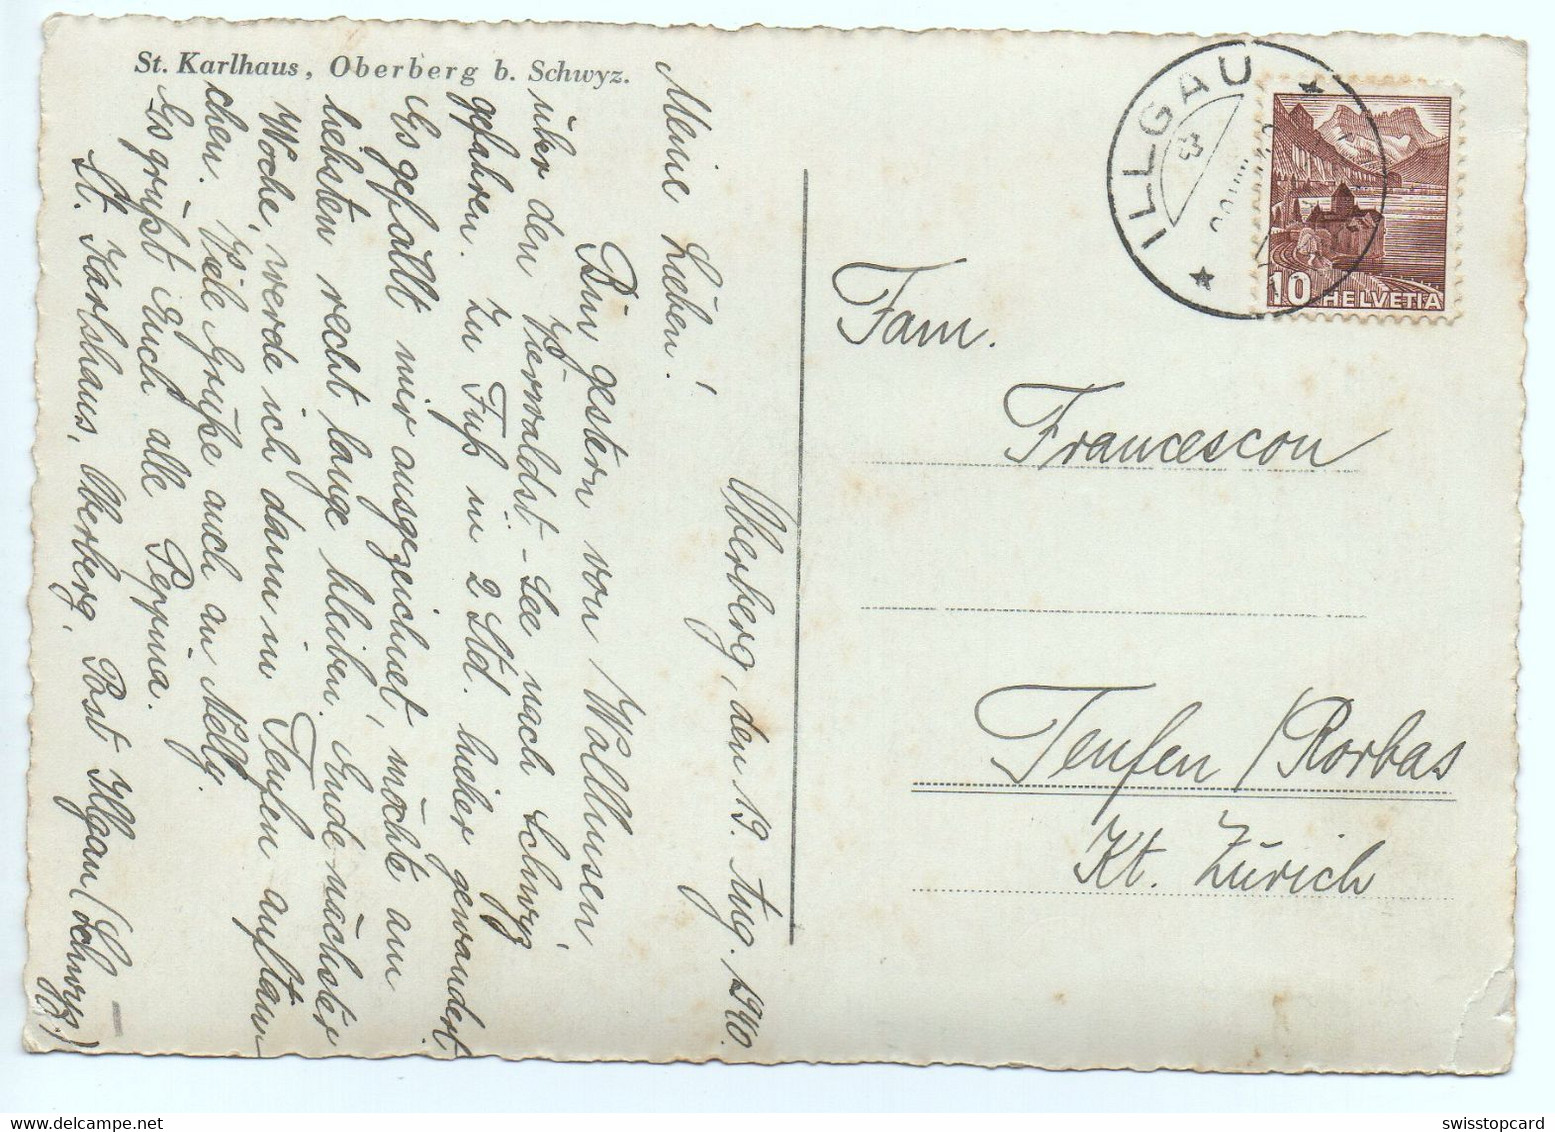 St. Karlhaus, Oberberg b. Schwyz.
Oberberg, den 19. Aug. 1940.
Meine Lieben!
Bin gestern von Wollhusen
über den Vierwaldst-See nach Schwyz
gefahren. Zu Fuß in 2 Std. hieher gewandert.
Es gefällt mir ausgezeichnet, möchte am
liebsten recht lange bleiben. Ende nächster
Woche, werde ich dann in Teufen auftau
chen. Viele Grüße auch an Nelly.
Es grüßt Euch alle Peppina.
St. Karlshaus, Oberberg, Post Illgau (Schwyz)
ILLGAU
10 HELVETIA
Fam.
Francescon
Teufen / Rorbas
Kt. Zürich
swisstopcard